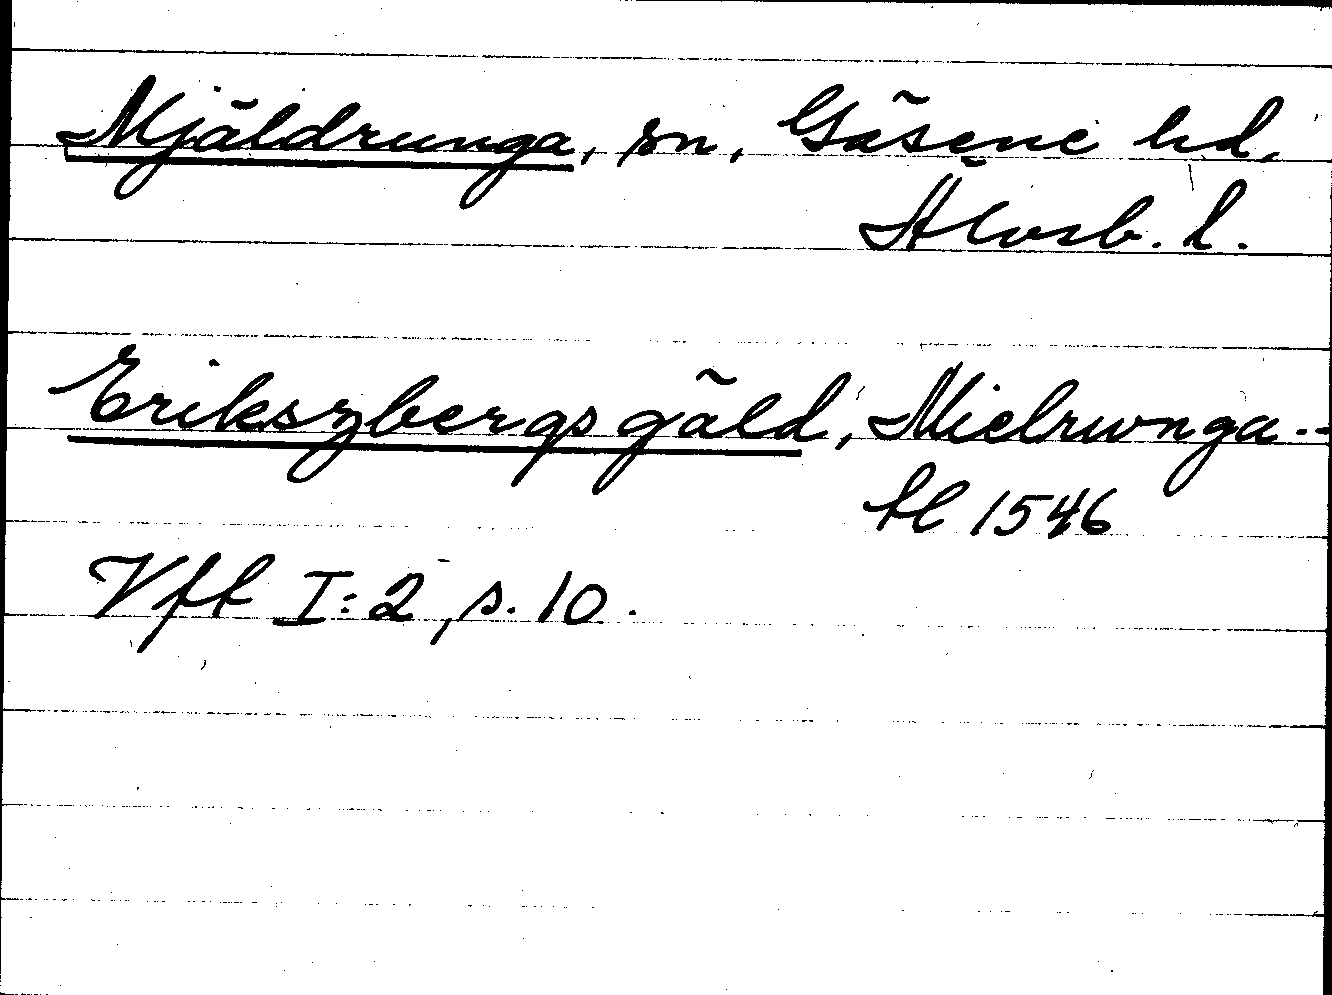 Mjäldrunga, sn, Gäsene hd,
Älvsb. l.
Erikszbergs gäld, Mielrwnga --
tl 1546
Vft I:2, s. 10.